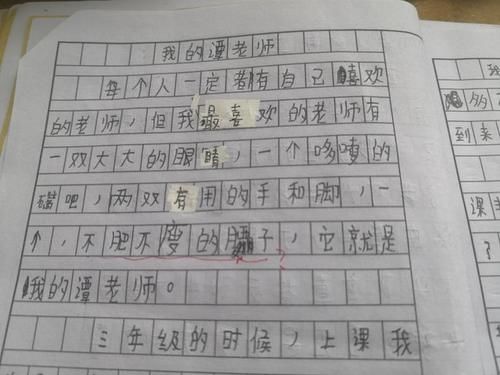 我的潭老师
每个人一定都有自己喜欢
的老师，但我最喜欢的老师有
一双大大的眼睛，一个哆嗦的
嘴吧，两双有用的手和脚，一
个，不肥不瘦的腰子，它就是
我的潭老师。
三年级的时候，上课我
我
够
到来
课
了